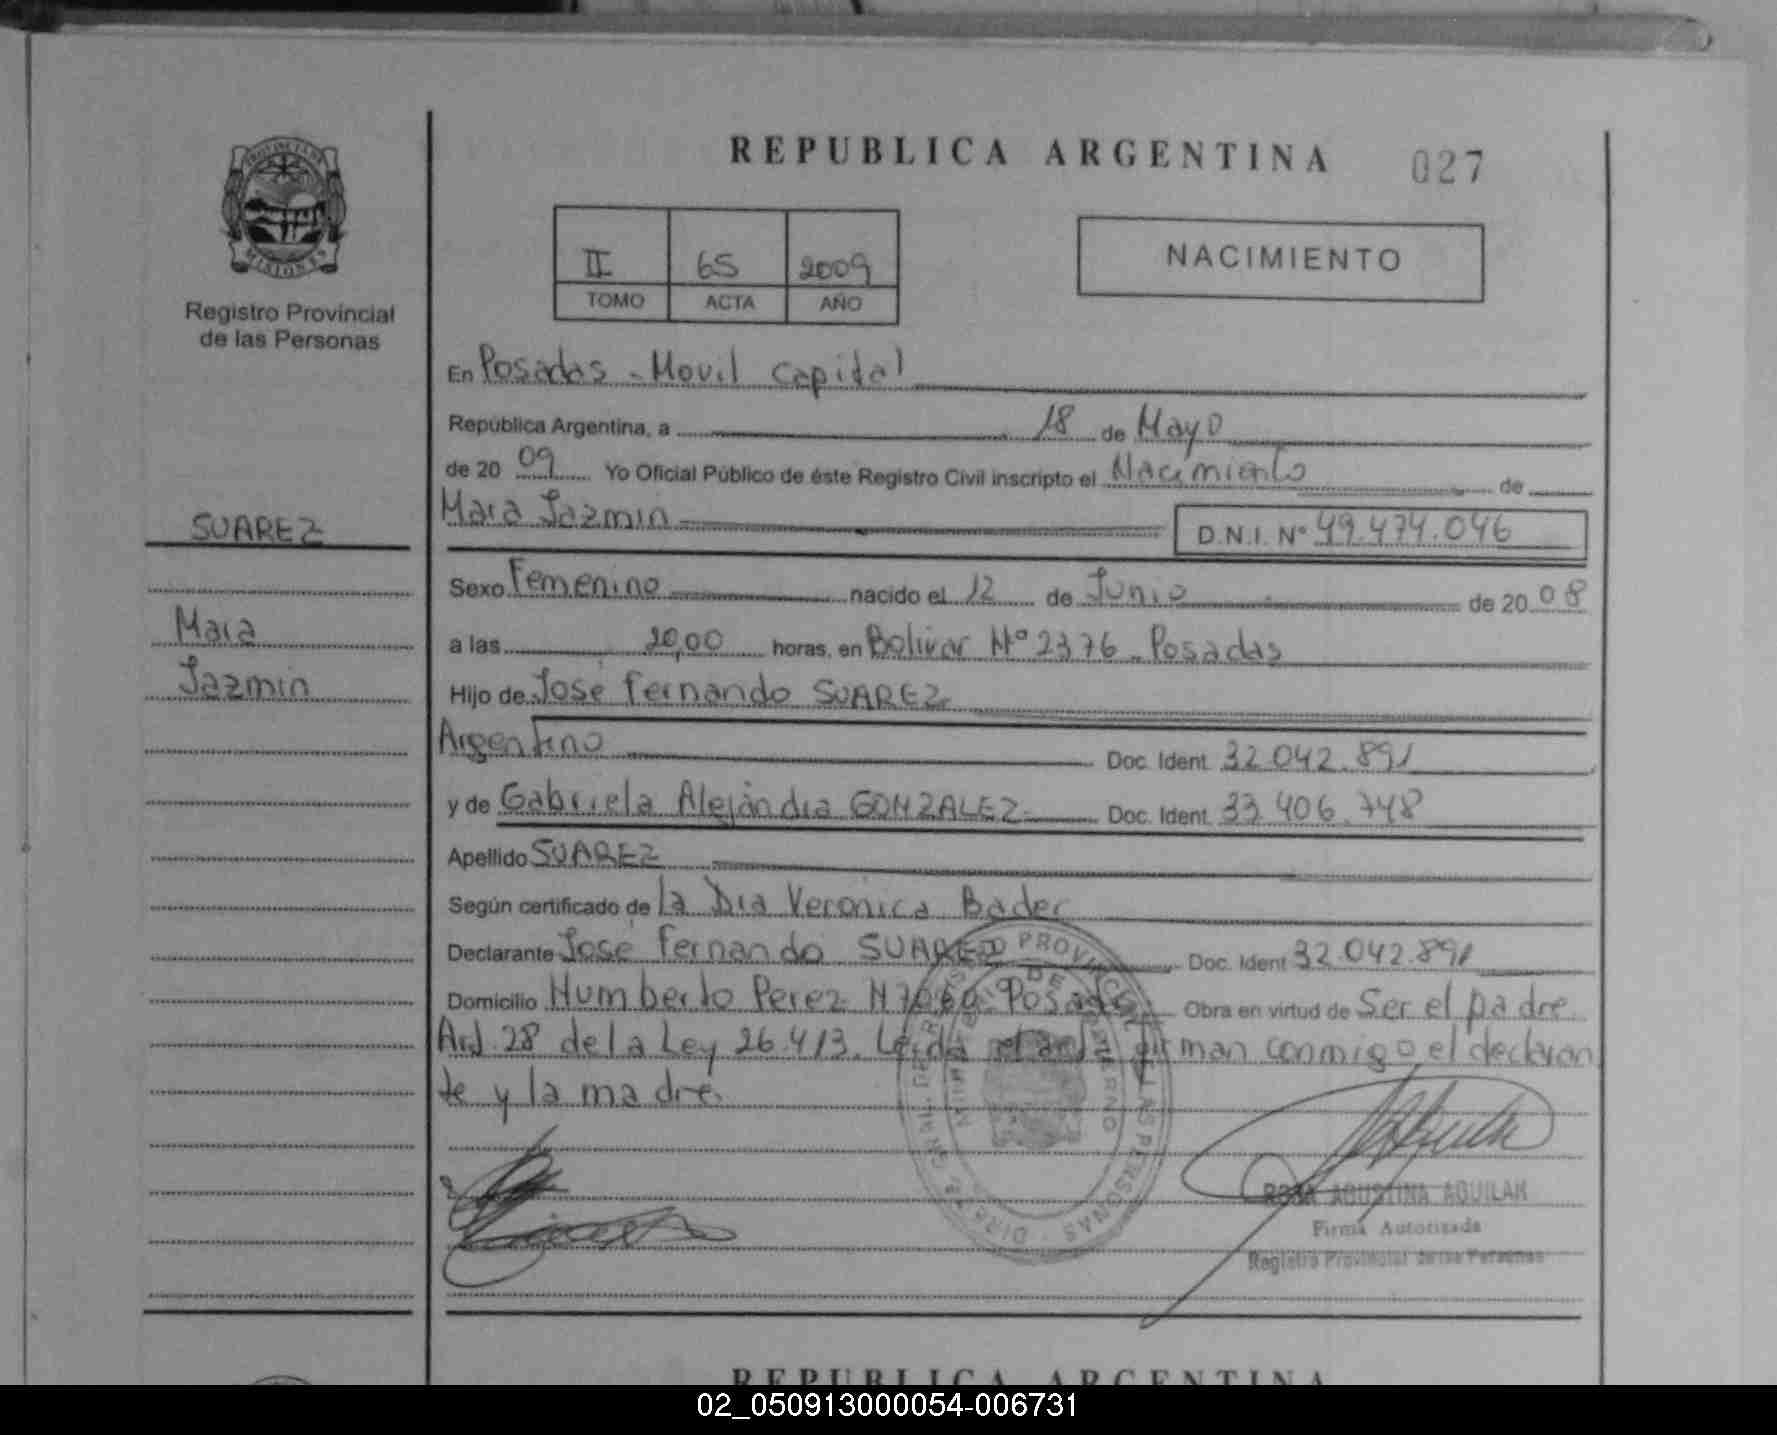 REPUBLICA ARGENTINA 027
PROVINCIA DE
MISIONES
Registro Provincial
de las Personas
II 65 2009
TOMO ACTA AÑO
NACIMIENTO
En Posadas - Movil Capital
República Argentina, a 18 de Mayo
de 20 09 Yo Oficial Público de éste Registro Civil inscripto el Nacimiento de
Mara Jazmin D.N.I. N° 49.474.046
SUAREZ
Mara
Jazmin
Sexo Femenino nacido el 12 de Junio de 20 08
a las 20,00 horas, en Bolivar N° 2376 - Posadas
Hijo de José Fernando SUAREZ
Argentino Doc. Ident. 32.042.891
y de Gabriela Alejandra GONZALEZ Doc. Ident. 33.406.748
Apellido SUAREZ
Según certificado de la Dra Veronica Bader
Declarante José Fernando SUAREZ Doc. Ident 32.042.891
Domicilio Humberto Perez Posadas Obra en virtud de Ser el padre
Art. 28 de la Ley 26.413. Leida el acta firman conmigo el declaran
te y la madre.
ROSA AGUSTINA AGUILAR
Firma Autorizada
Registro Provincial de las Personas
REPUBLICA ARGENTINA
02_050913000054-006731